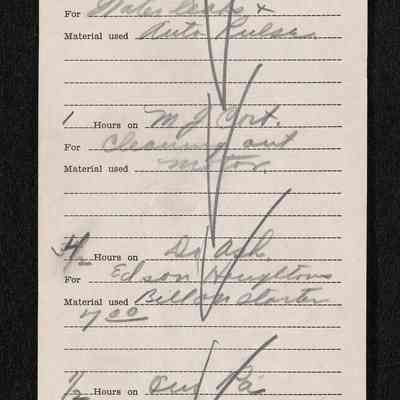 For Water leaks +
Material used Auto Pulse.
1 Hours on M J Cort.
For Cleaning out
Material used motor.
1/2 Hours on Dr Ash.
For Edson Houghtons
Material used Billow starter
7 00
1/2 Hours on Our Pa